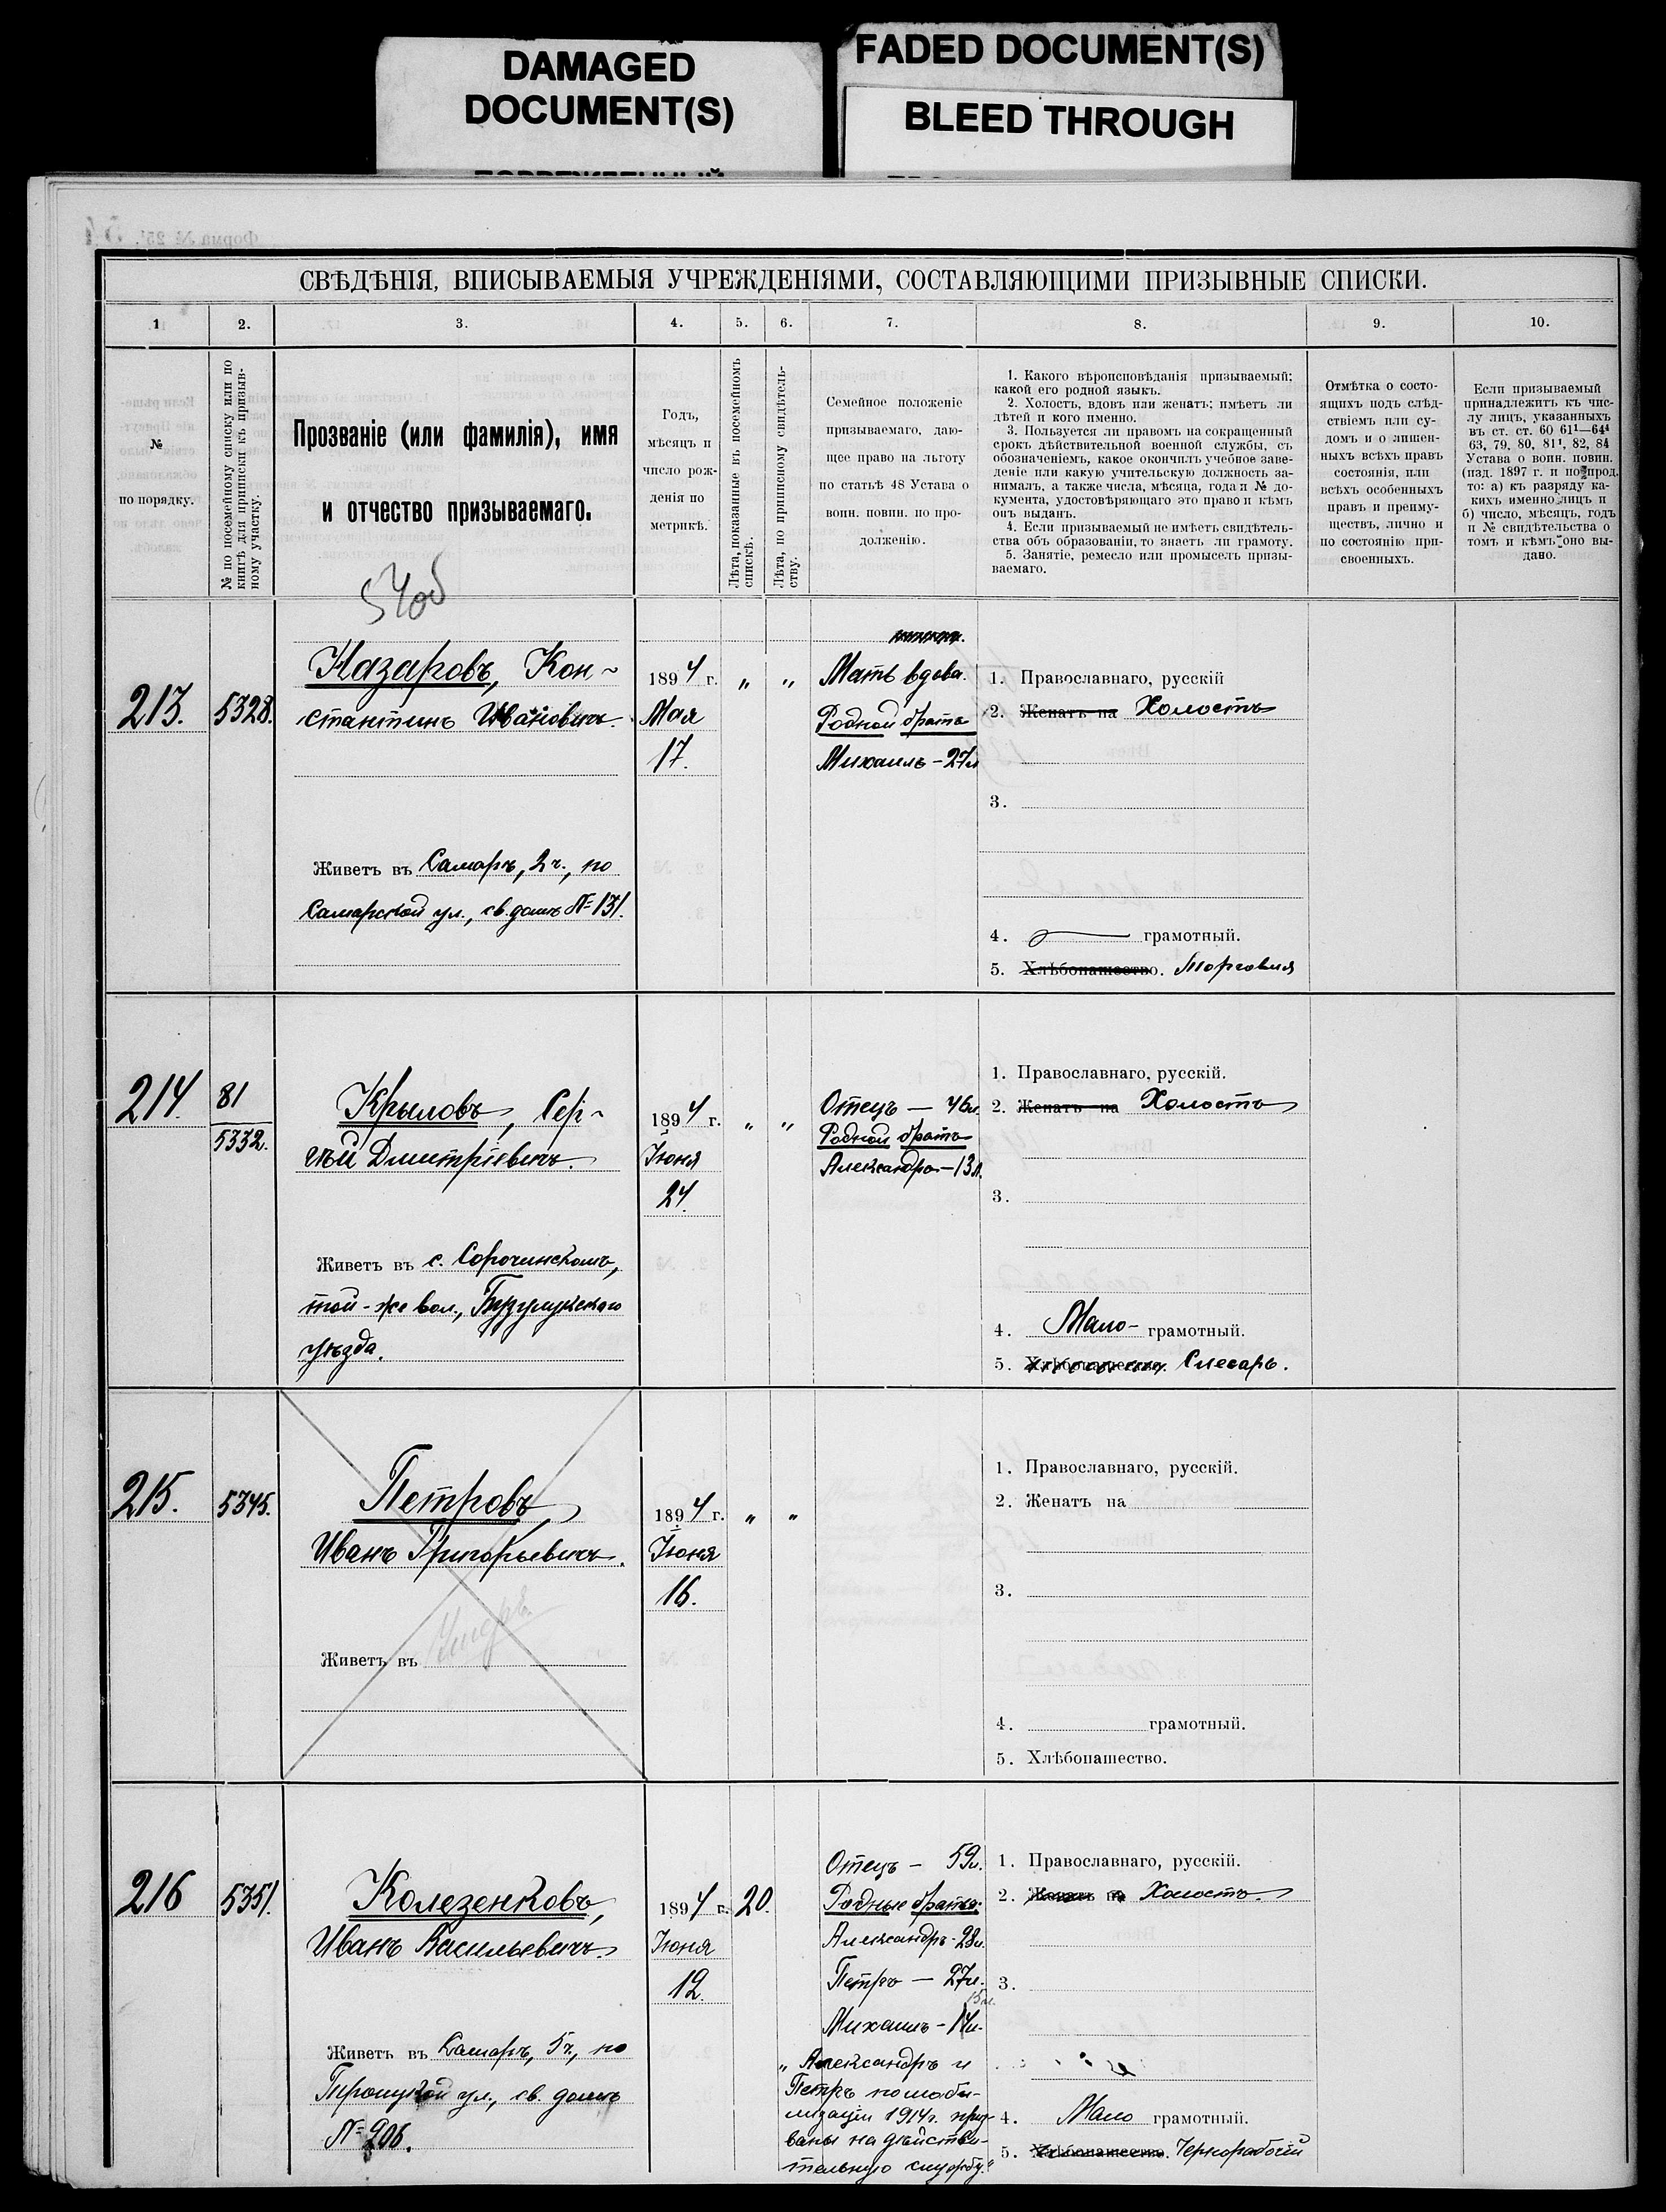 DAMAGED
DOCUMENT(S)
FADED DOCUMENT(S)
BLEED THROUGH
СВѢДѢНІЯ, ВПИСЫВАЕМЫЯ УЧРЕЖДЕНІЯМИ, СОСТАВЛЯЮЩИМИ ПРИЗЫВНЫЕ СПИСКИ.
1 2. 3. 4. 5. 6. 7. 8. 9. 10.
№
по порядку.
№ по посемейному списку или по
книгѣ для приписки къ призыв-
ному участку.
Прозваніе (или фамилія), имя
и отчество призываемаго.
Годъ,
мѣсяцъ и
число рож-
денія по
метрикѣ.
Лѣта, показанные въ посемейномъ
спискѣ.
Лѣта, по приписному свидѣтель-
ству.
Семейное положеніе
призываемаго, даю-
щее право на льготу
по статьѣ 48 Устава о
воин. повин. по про-
долженію.
1. Какого вѣроисповѣданія призываемый;
какой его родной языкъ.
2. Холостъ, вдовъ или женатъ; имѣетъ ли
дѣтей и кого именно.
3. Пользуется ли правомъ на сокращенный
срокъ дѣйствительной военной службы, съ
обозначеніемъ, какое окончилъ учебное заве-
деніе или какую учительскую должность за-
нималъ, а также числа, мѣсяца, года и № до-
кумента, удостовѣряющаго это право и кѣмъ
онъ выданъ.
4. Если призываемый не имѣетъ свидѣтель-
ства объ образованіи, то знаетъ ли грамоту.
5. Занятіе, ремесло или промыселъ призы-
ваемаго.
Отмѣтка о состо-
ящихъ подъ слѣд-
ствіемъ или су-
домъ и о лишен-
ныхъ всѣхъ правъ
состоянія, или
всѣхъ особенныхъ
правъ и преиму-
ществъ, лично и
по состоянію при-
своенныхъ.
Если призываемый
принадлежитъ къ чис-
лу лицъ, указанныхъ
въ ст. ст. 60 61¹—64⁴
63, 79, 80, 81¹, 82, 84
Устава о воин. повин.
(изд. 1897 г. и по прод.
то: а) къ разряду ка-
кихъ именно лицъ и
б) число, мѣсяцъ, годъ
и № свидѣтельства о
томъ и кѣмъ оно вы-
дано.
213.
5328.
Назаровъ, Кон-
стантинъ Ивановичъ.
Живетъ въ Самарѣ, 2 ч., по
Самарской ул., св. домъ № 131.
1894 г.
Мая
17.
" "
Мать вдова.
Родной братъ
Михаилъ - 27 л
1. Православнаго, русскій
2. Женатъ на Холостъ
3.
4. грамотный.
5. Хлѣбопашество. Торговля
214.
81
5332.
Крыловъ, Сер-
гѣй Дмитріевичъ.
Живетъ въ с. Сорочинскомъ,
той-же вол., Бузулукскаго
уѣзда.
1894 г.
Іюня
24.
" "
Отецъ — 46 л.
Родной братъ
Александръ — 13 л.
1. Православнаго, русскій.
2. Женатъ на Холостъ
3.
4. Мало- грамотный.
5. Хлѣбопашество. Слесарь.
215.
5345.
Петровъ,
Иванъ Григорьевичъ.
Живетъ въ
1894 г.
Іюня
16.
" "
1. Православнаго, русскій.
2. Женатъ на
3.
4. грамотный.
5. Хлѣбопашество.
216
5351.
Колезенковъ,
Иванъ Васильевичъ.
Живетъ въ Самарѣ, 5 ч., по
Троицкой ул., св. домъ
№ 206.
1894 г.
Іюня
12.
20.
Отецъ - 59 л.
Родные братья:
Александръ - 28 л.
Петръ — 27 л.
15 л.
Михаилъ - 14 л.
„Александръ и
Петръ по моби-
лизаціи 1914 г. приз-
ваны на дѣйстви-
тельную службу."
1. Православнаго, русскій.
2. Женатъ на Холостъ.
3.
4. Мало грамотный.
5. Хлѣбопашество. Чернорабочій